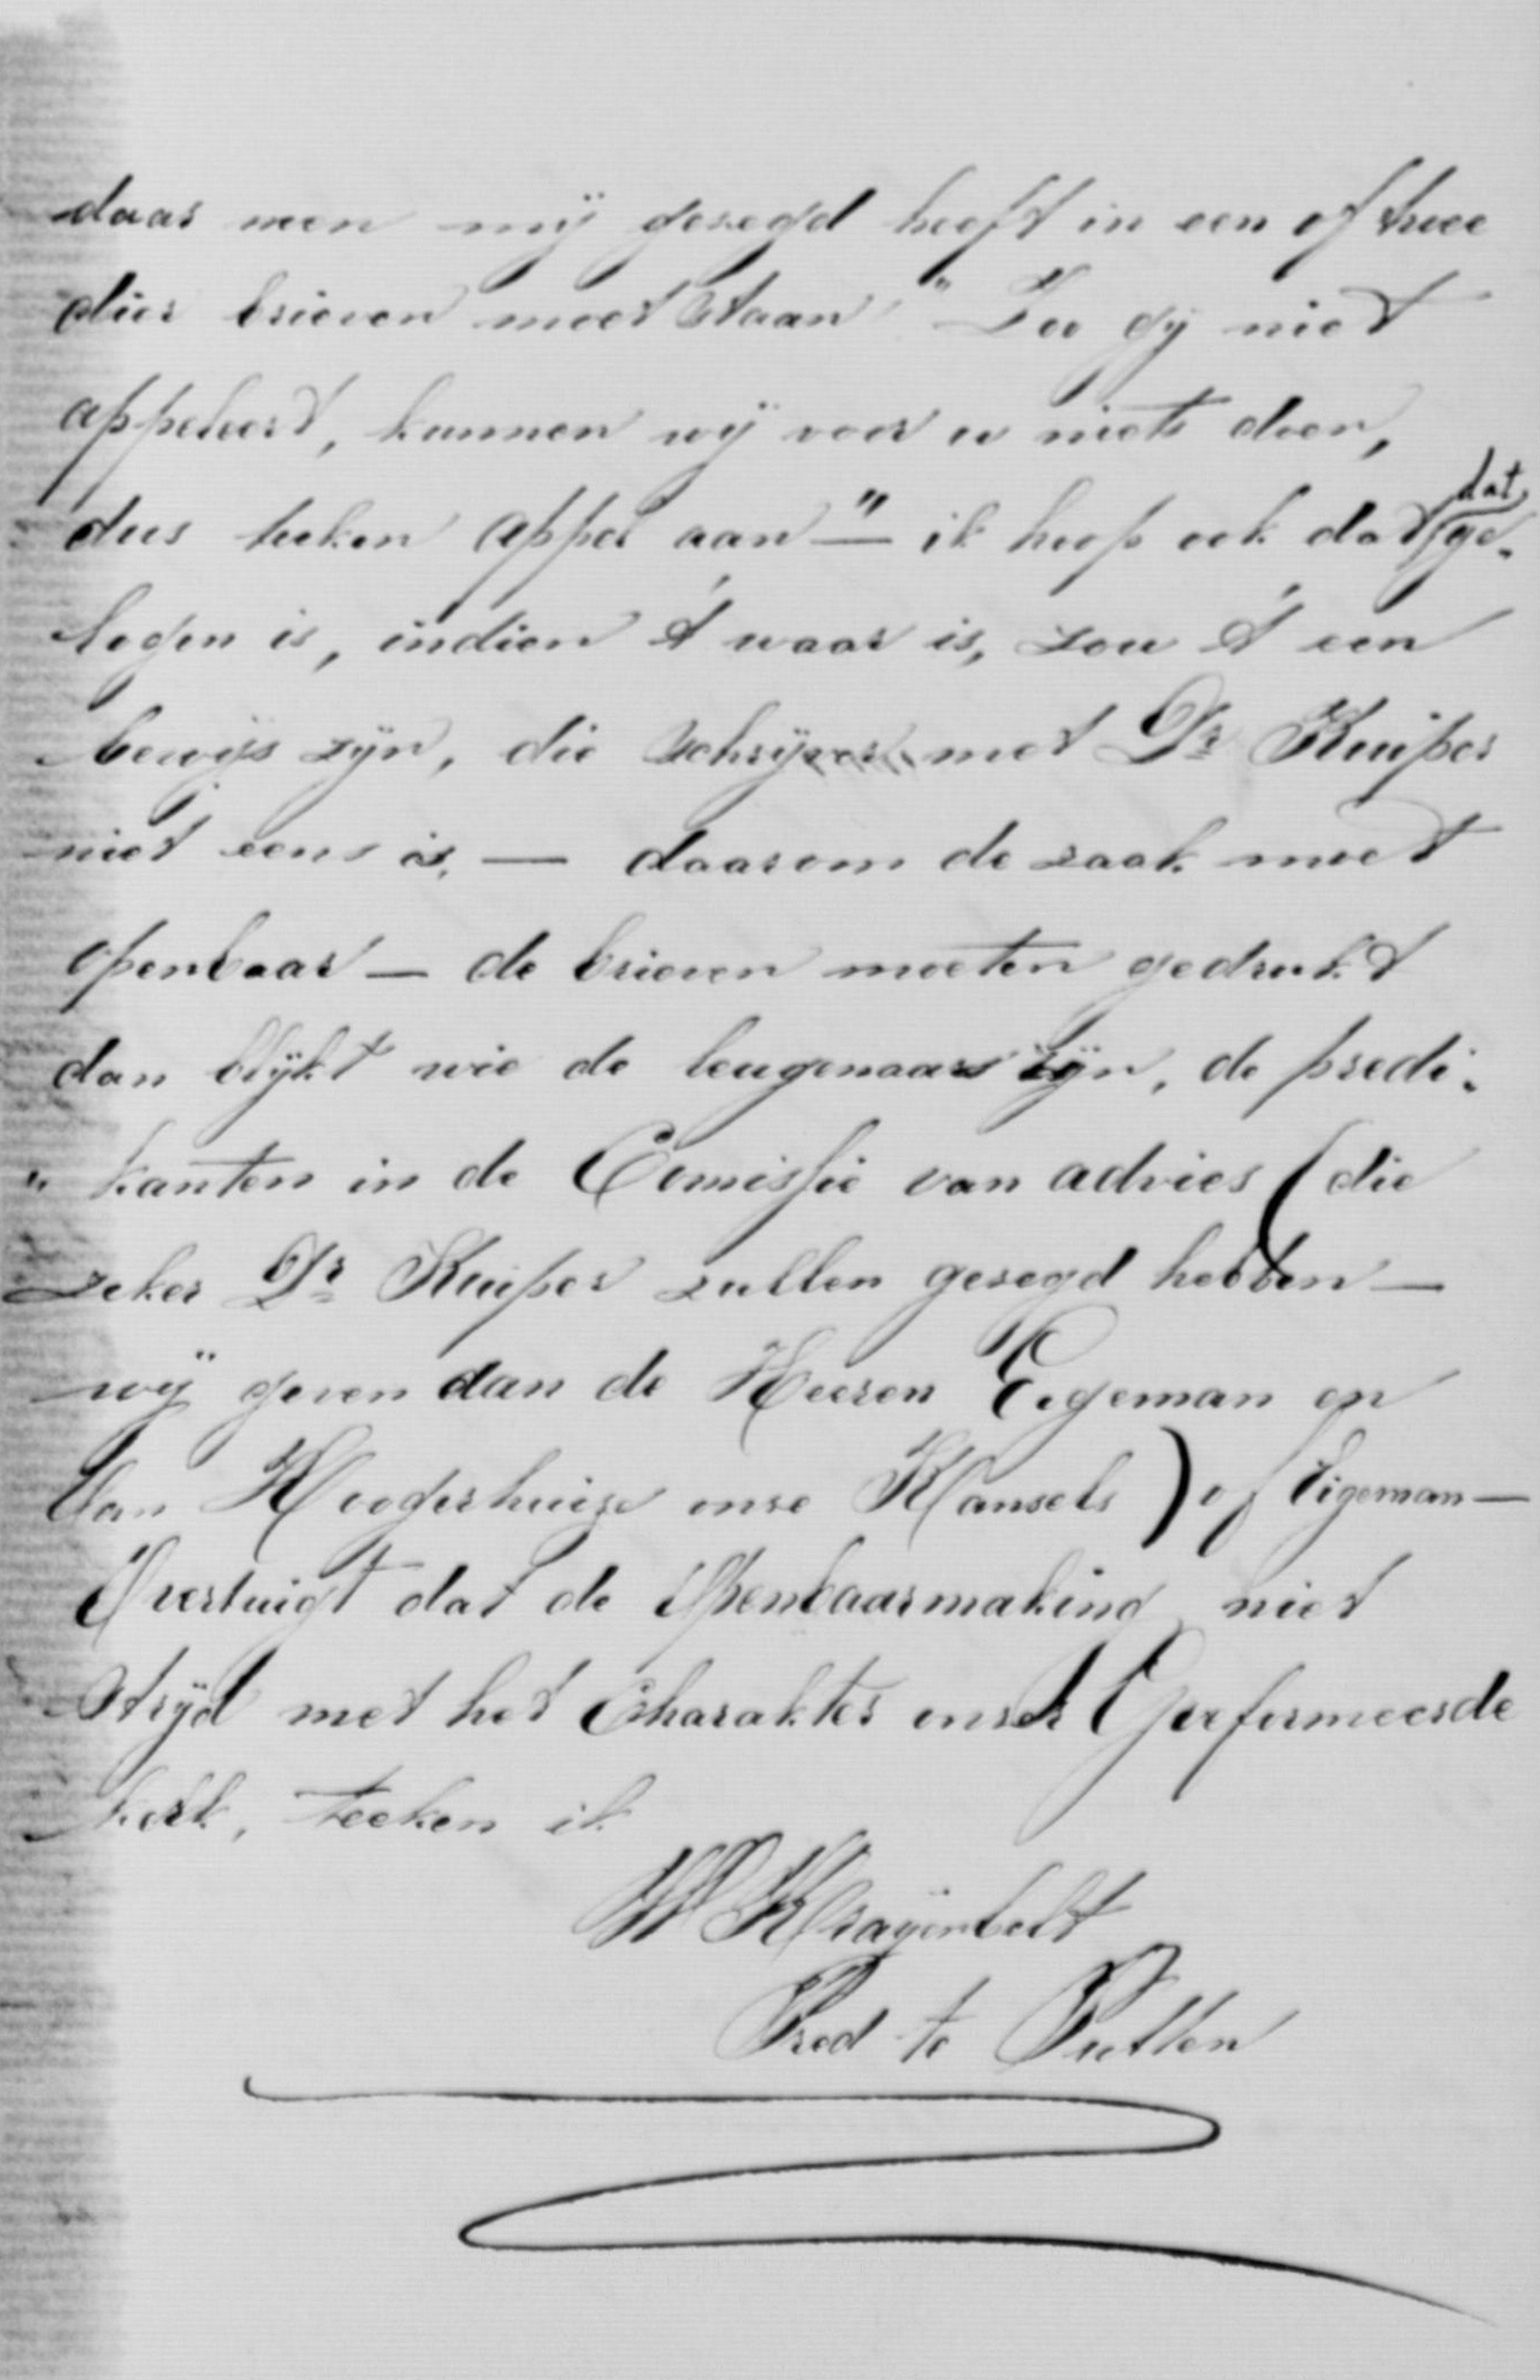 daar men mij gezegd heeft in een of twee
dier brieven moet staan "Zoo gij niet
appeleert, kunnen wij voor u niets doen,
dus teken appel aan" — ik hoop ook dat dat ge-
logen is, indien 't waar is, zou 't een
bewijs zijn, die schrijver met Dr Kuiper
niet eens is. — daarom de zaak moet
openbaar — de brieven moeten gedrukt
dan blijkt wie de leugenaars zijn, de predi-
"kanten in de Comissie van advies (die
zeker Dr Kuiper zullen gezegd hebben —
wij geven dan de Heeren Eigeman en
van Hoogerhuize onze Kansels) of Eigeman —
Overtuigt dat de Openbaarmaking niet
strijd met het Charakter onzer Gereformeerde
kerk, teeken ik
W Kraijenbelt
Pred te Putten